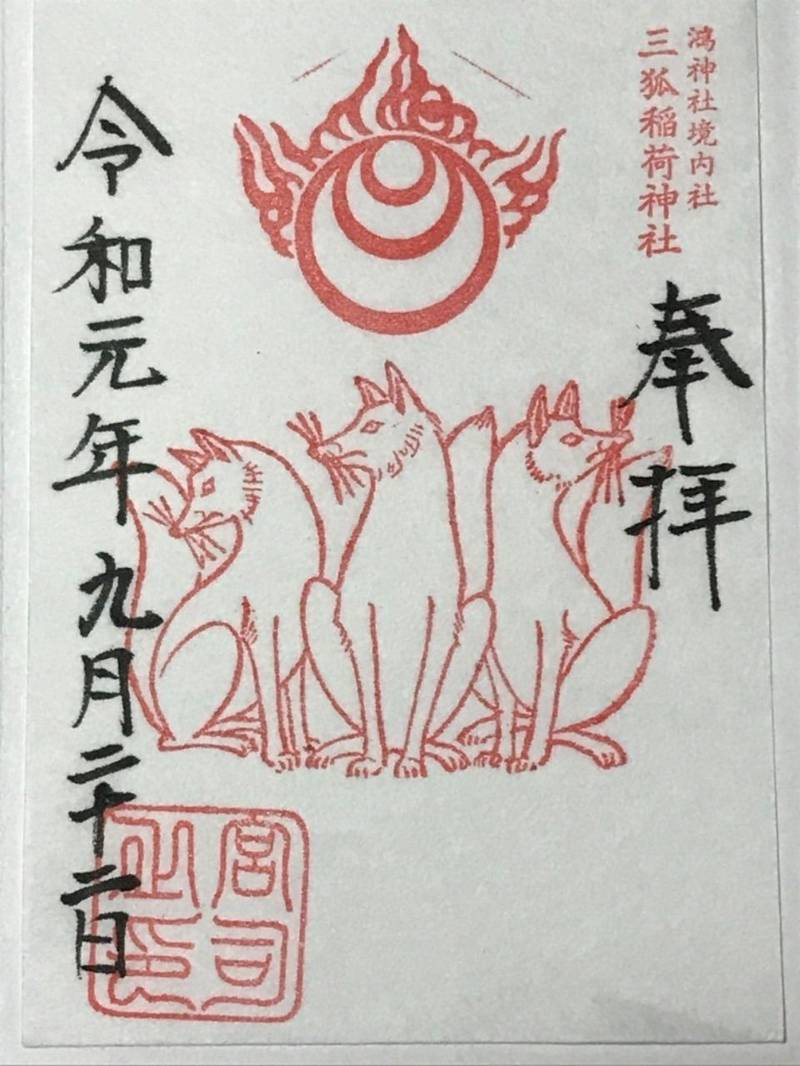 鴻神社境内社
三狐稲荷神社
奉拝
令和元年九月二十二日
宮司
之印